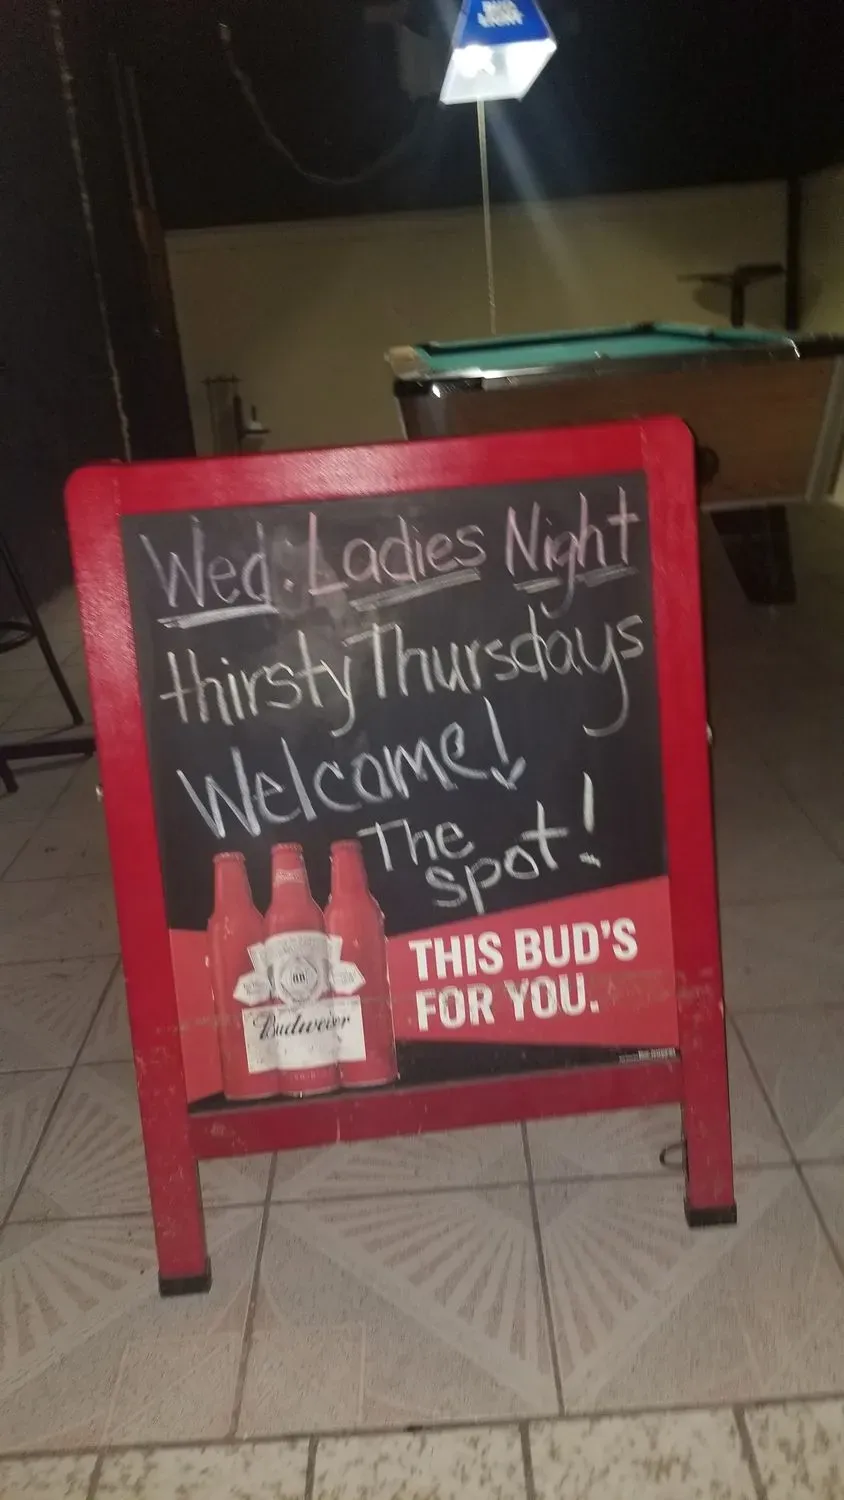 BUD LIGHT
Wed: Ladies Night
thirsty Thursdays
Welcome!
The
spot!
THIS BUD'S
FOR YOU.
Budweiser